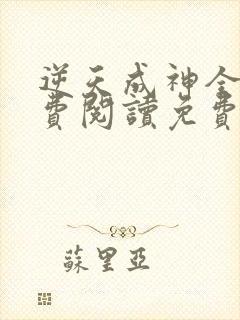 逆天成神全
費閱讀免費
蘇里亞